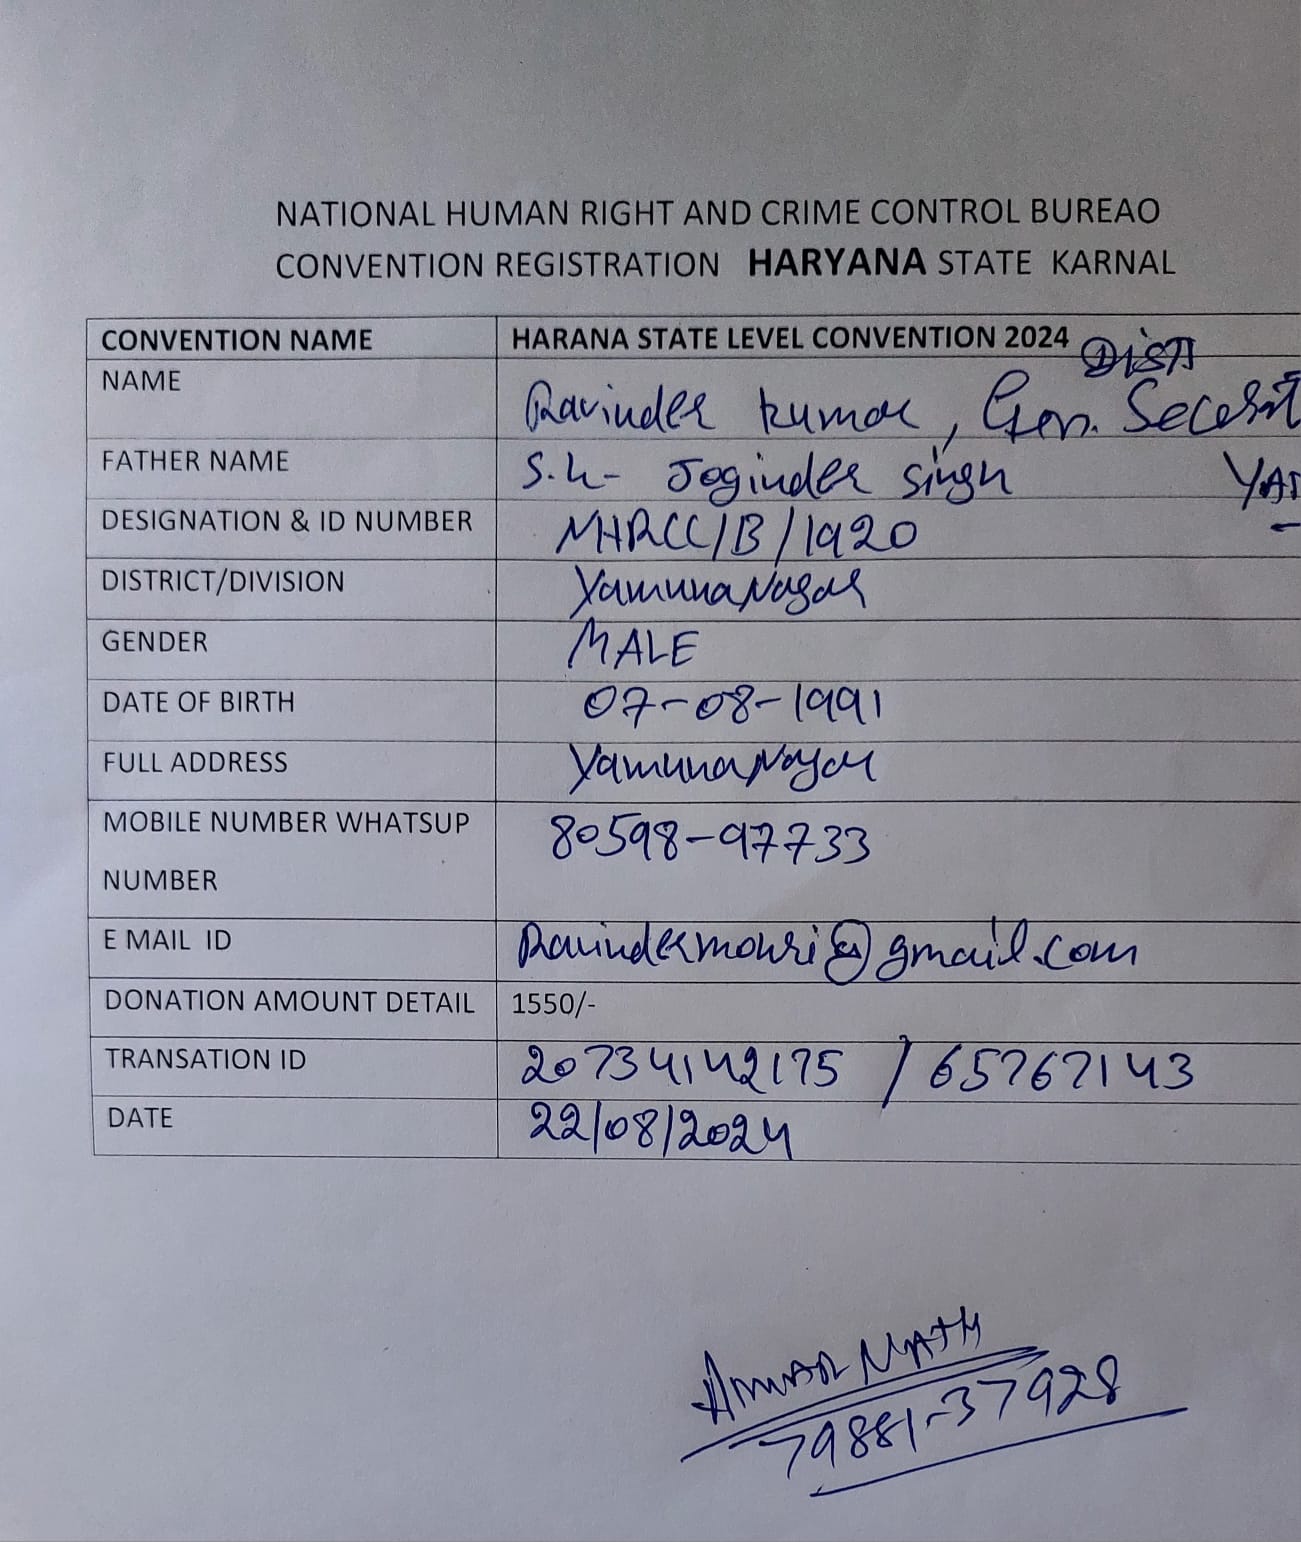 NATIONAL HUMAN RIGHT AND CRIME CONTROL BUREAO
CONVENTION REGISTRATION HARYANA STATE KARNAL
CONVENTION NAME HARANA STATE LEVEL CONVENTION 2024
DISTT
NAME Ravinder kumar, Gen. Secert
FATHER NAME S.h- Joginder Singh
DESIGNATION & ID NUMBER NHRCC/B/1920
DISTRICT/DIVISION YamunaNagar
GENDER MALE
DATE OF BIRTH 07-08-1991
FULL ADDRESS YamunaNagar
MOBILE NUMBER WHATSUP 80598-97733
NUMBER
E MAIL ID Ravindermouri@gmail.com
DONATION AMOUNT DETAIL 1550/-
TRANSATION ID 20734142175 / 65767143
DATE 22/08/2024
AMAR NATH
79881-37928